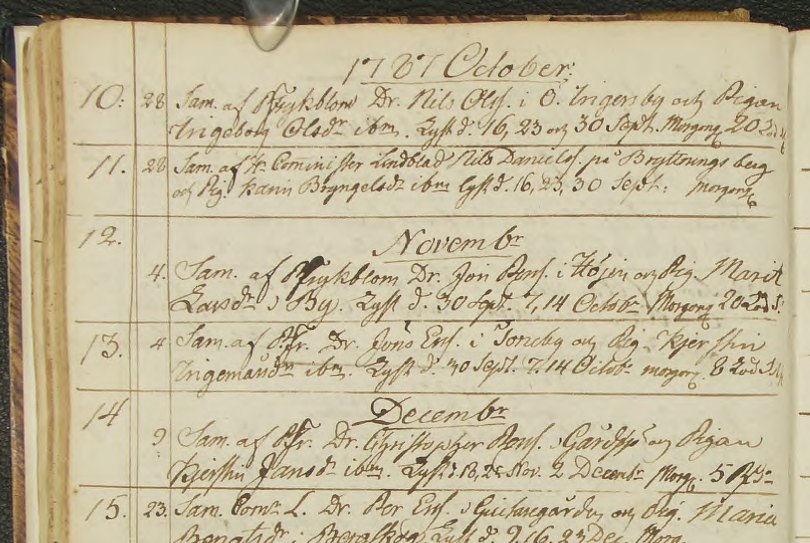 1787 October:
10: 28 Sam. af P Frykblom Dr. Nils Olss. i Ö. Ingersby och Pigan
Ingeborg Olsdr ibm. Lyst d. 16, 23 och 30 Sept. Morgong 20 Lod
11. 28 Sam. af Hr Cominister Lindblad Nils Daniels. på berg
och Pig. Karin Bryngelsdr ibm lyst d. 16, 23, 30 Sept: Morgong
12.
Novembr
4. Sam. af P Frykblom Dr. Jon Perss. i Höjen och Pig. Marit
Larsdr i By. Lyst d. 30 Sept. 7, 14 Octobr Morgong 20 Lod S.
13. 4 Sam. af P. Fr. Dr. Jöns Ers. i Torneby och Pig Kjerstin
Ingemarsdr ibm. Lyst d. 30 Sept. 7. 14 Octobr morgong. 8 Lod
14
Decembr
9 Sam. af P. Fr. Dr. Christopher Perss. i och Pigan
Kjerstin Jansdr ibm. Lyst d 18, 25 Nov. 2 Decembr Morg. 5
15. 23. Sam. Comr L. Dr. Per Ers. i och Pig. Maria
Bengtsdr i Bergskog Lyst d. 9, 16, 23 Dec. Morg